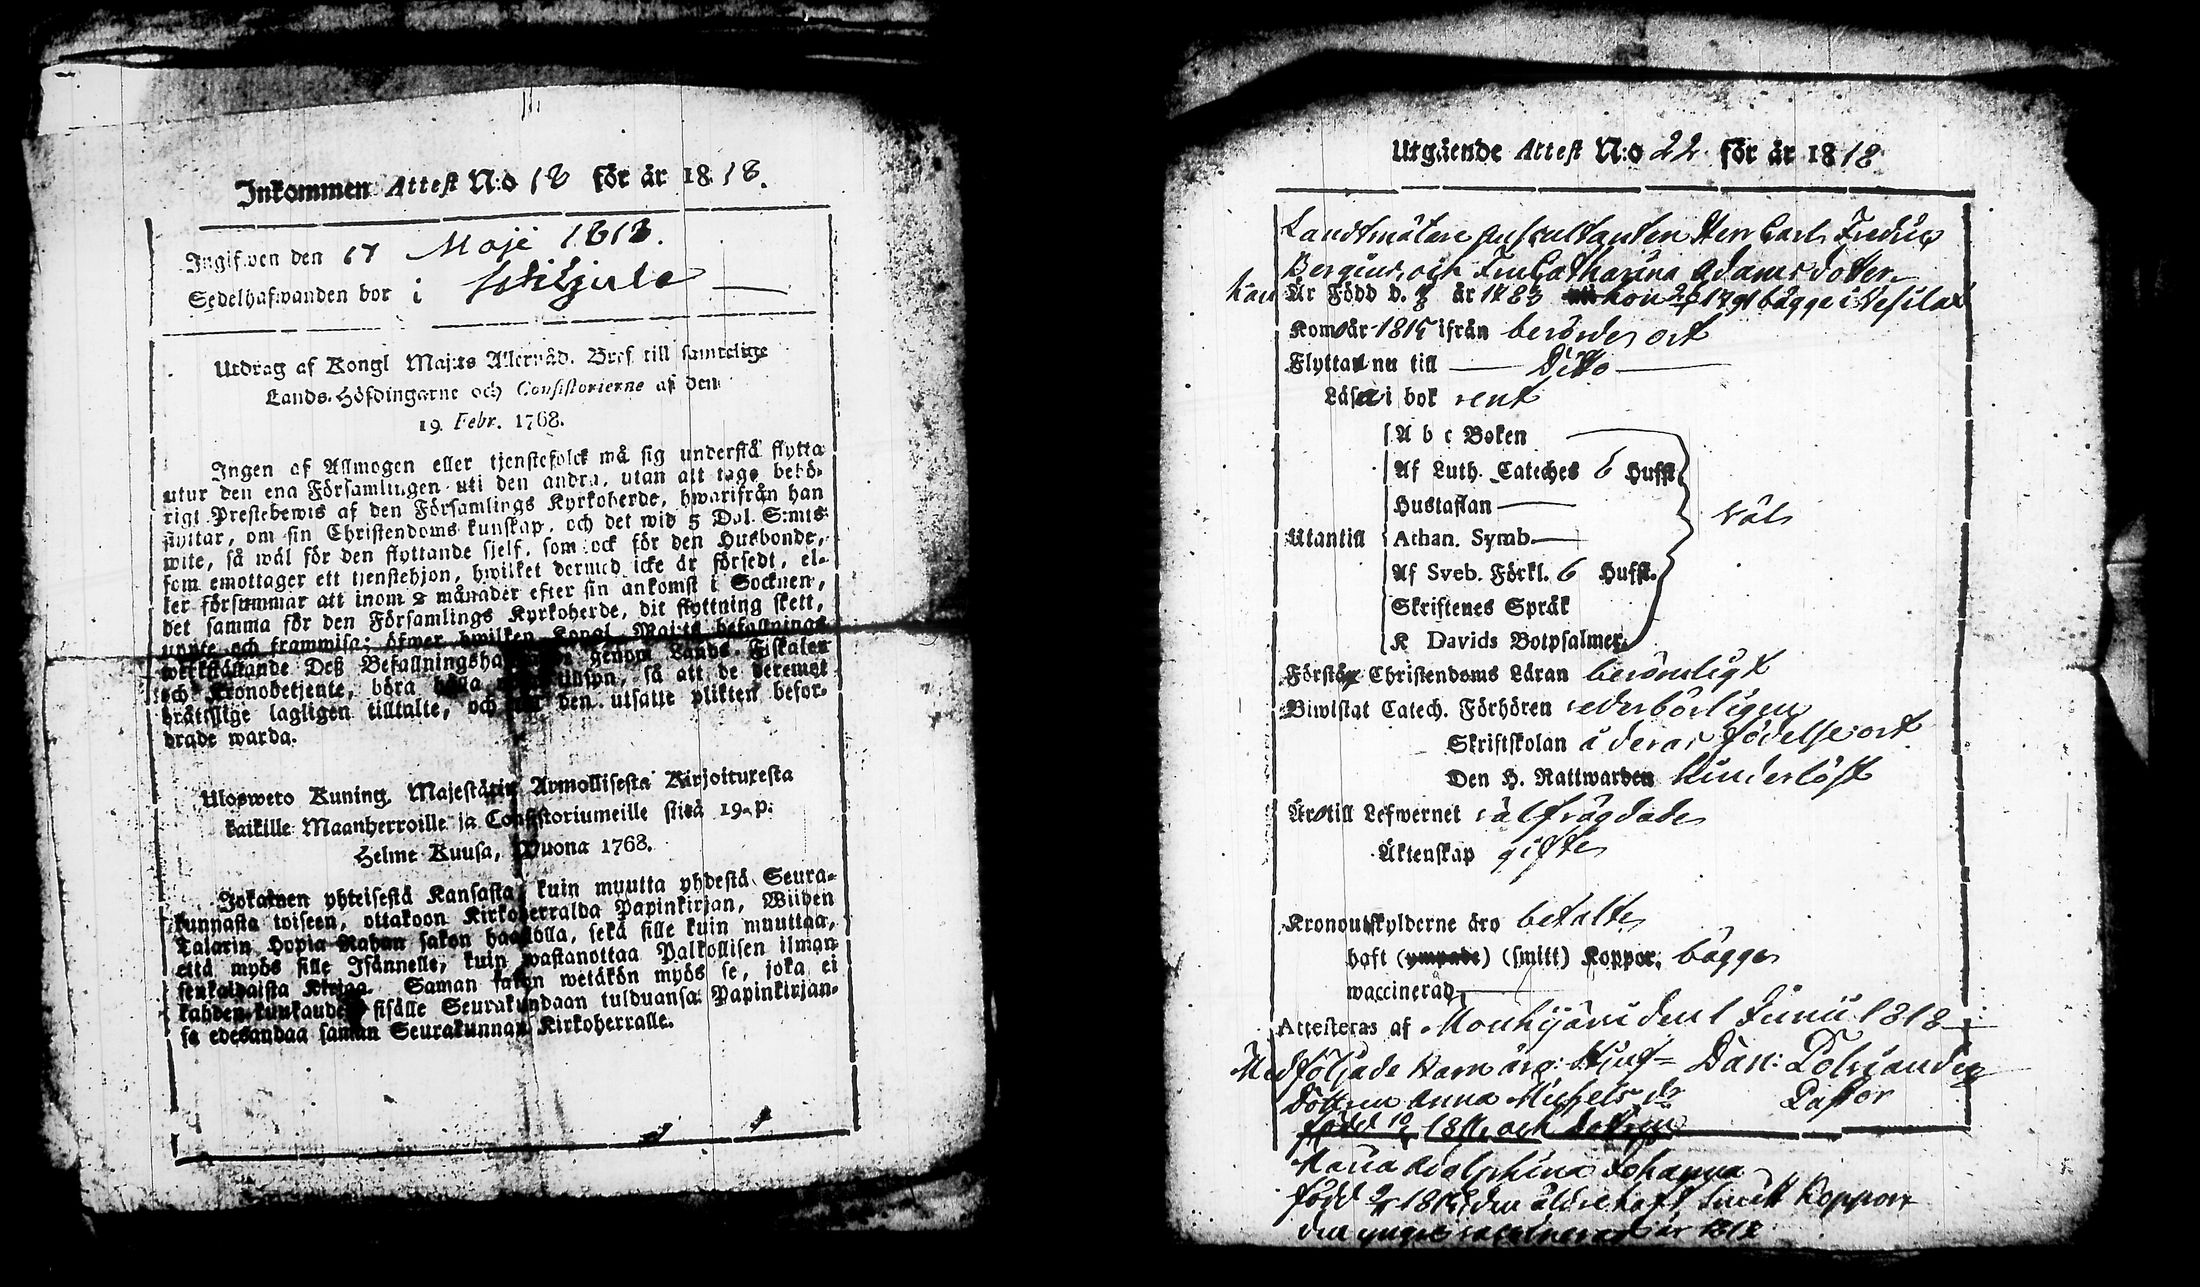 Inkommen Attest N:o 18 för år 1818.
Ingifwen den 17 Maji 1818.
Sedelhafwanden bor i
Utdrag af Kongl Maj:ts Allernåd. Bref till samtelige
Lands-Höfdingarne och Consistorierne af den
19. Febr. 1768.
Ingen af Allmogen eller tjenstefolck må sig understå flytta
utur den ena Församlingen uti den andra, utan att taga behö-
rigt Prestebewis af den Församlings Kyrkoherde, hwarifrån han
flyttar, om sin Christendoms kunskap, och det wid 5 Dal. S:mts
wite, så wäl för den flyttande sjelf, som ock för den Husbonde,
som emottager ett tjenstehjon, hwilket dermed icke är försedt, el-
ler försummar att inom 2 månader efter sin ankomst i Socknen,
det samma för den Församlings Kyrkoherde, dit flyttning skett,
uppte och frammisa; öfwer hwilken Kongl. Maj:ts befallnings
werkställande Deß Befallningshafwande genom Lands-Fiskaler
och Kronobetjente, böra hafwa tillsyn, så att de deremot
brätslige lagligen tilltalte, och till den utsatte plikten befor-
drade warda.
Ulosweto Kuning. Majestätin Armollisesta Kirjoituxesta
kaikille Maanherroille ja Consistoriumeille siitä 19. p.
Helme Kuusa, Wuona 1768.
Jokainen yhteisestä Kansasta, kuin muutta yhdestä Seura-
kunnasta toiseen, ottakoon Kirkoherralda Papinkirjan, Wiiden
Talarin Hopia Rahan sakon haastolla, sekä sille kuin muuttaa,
että myös sille Isännelle, kuin wastanottaa Palkollisen ilman
senkaltaista Kirjaa. Saman sakon wetäkön myös se, joka ei
kahden kuukauden sisälle Seurakundaan tulduansa Papinkirjan-
sa edesandaa saman Seurakunnan Kirkoherralle.
Utgående Attest N:o 22 för år 1818
Landtmäteri Auscultanten Herr Carl Fredric
Bergius och Fru Catharina Adamsdotter
han Är Född d. år 1783 hon bägge i Vesilax
Kom år 1815 ifrån berörde ort
Flyttar nu till — Ditto —
Läsa i bok rent
A b c Boken
Af Luth. Cateches 6 Hufst.
Hustaflan —
Utantill Athan. Symb — väl
Af Sveb. Förkl. 6 Hufst.
Skriftenes Språk
K Davids Botpsalmer
Förstår Christendoms Läran berömligt
Biwistat Catech. Förhören wederbörligen
Skriftskolan å deras födelseort
Den H. Nattwarden hinderlöst
Äro till Lefwernet välfrägdade
Äktenskap gifte
Kronoutskylderne äro betalte
haft (ympade) (smitt) Koppor, bägge
waccinerad —
Attesteras af Mouhijärvi den 1 Junii 1818
Medföljade barn äro: Styf- Dan: Polviander
Dottren Anna Michels dr Pastor
född 1811 och dottren
Maria Adolphina Johanna
född 1815 den äldre haft smitt koppor
den yngre vaccinerad år 1818